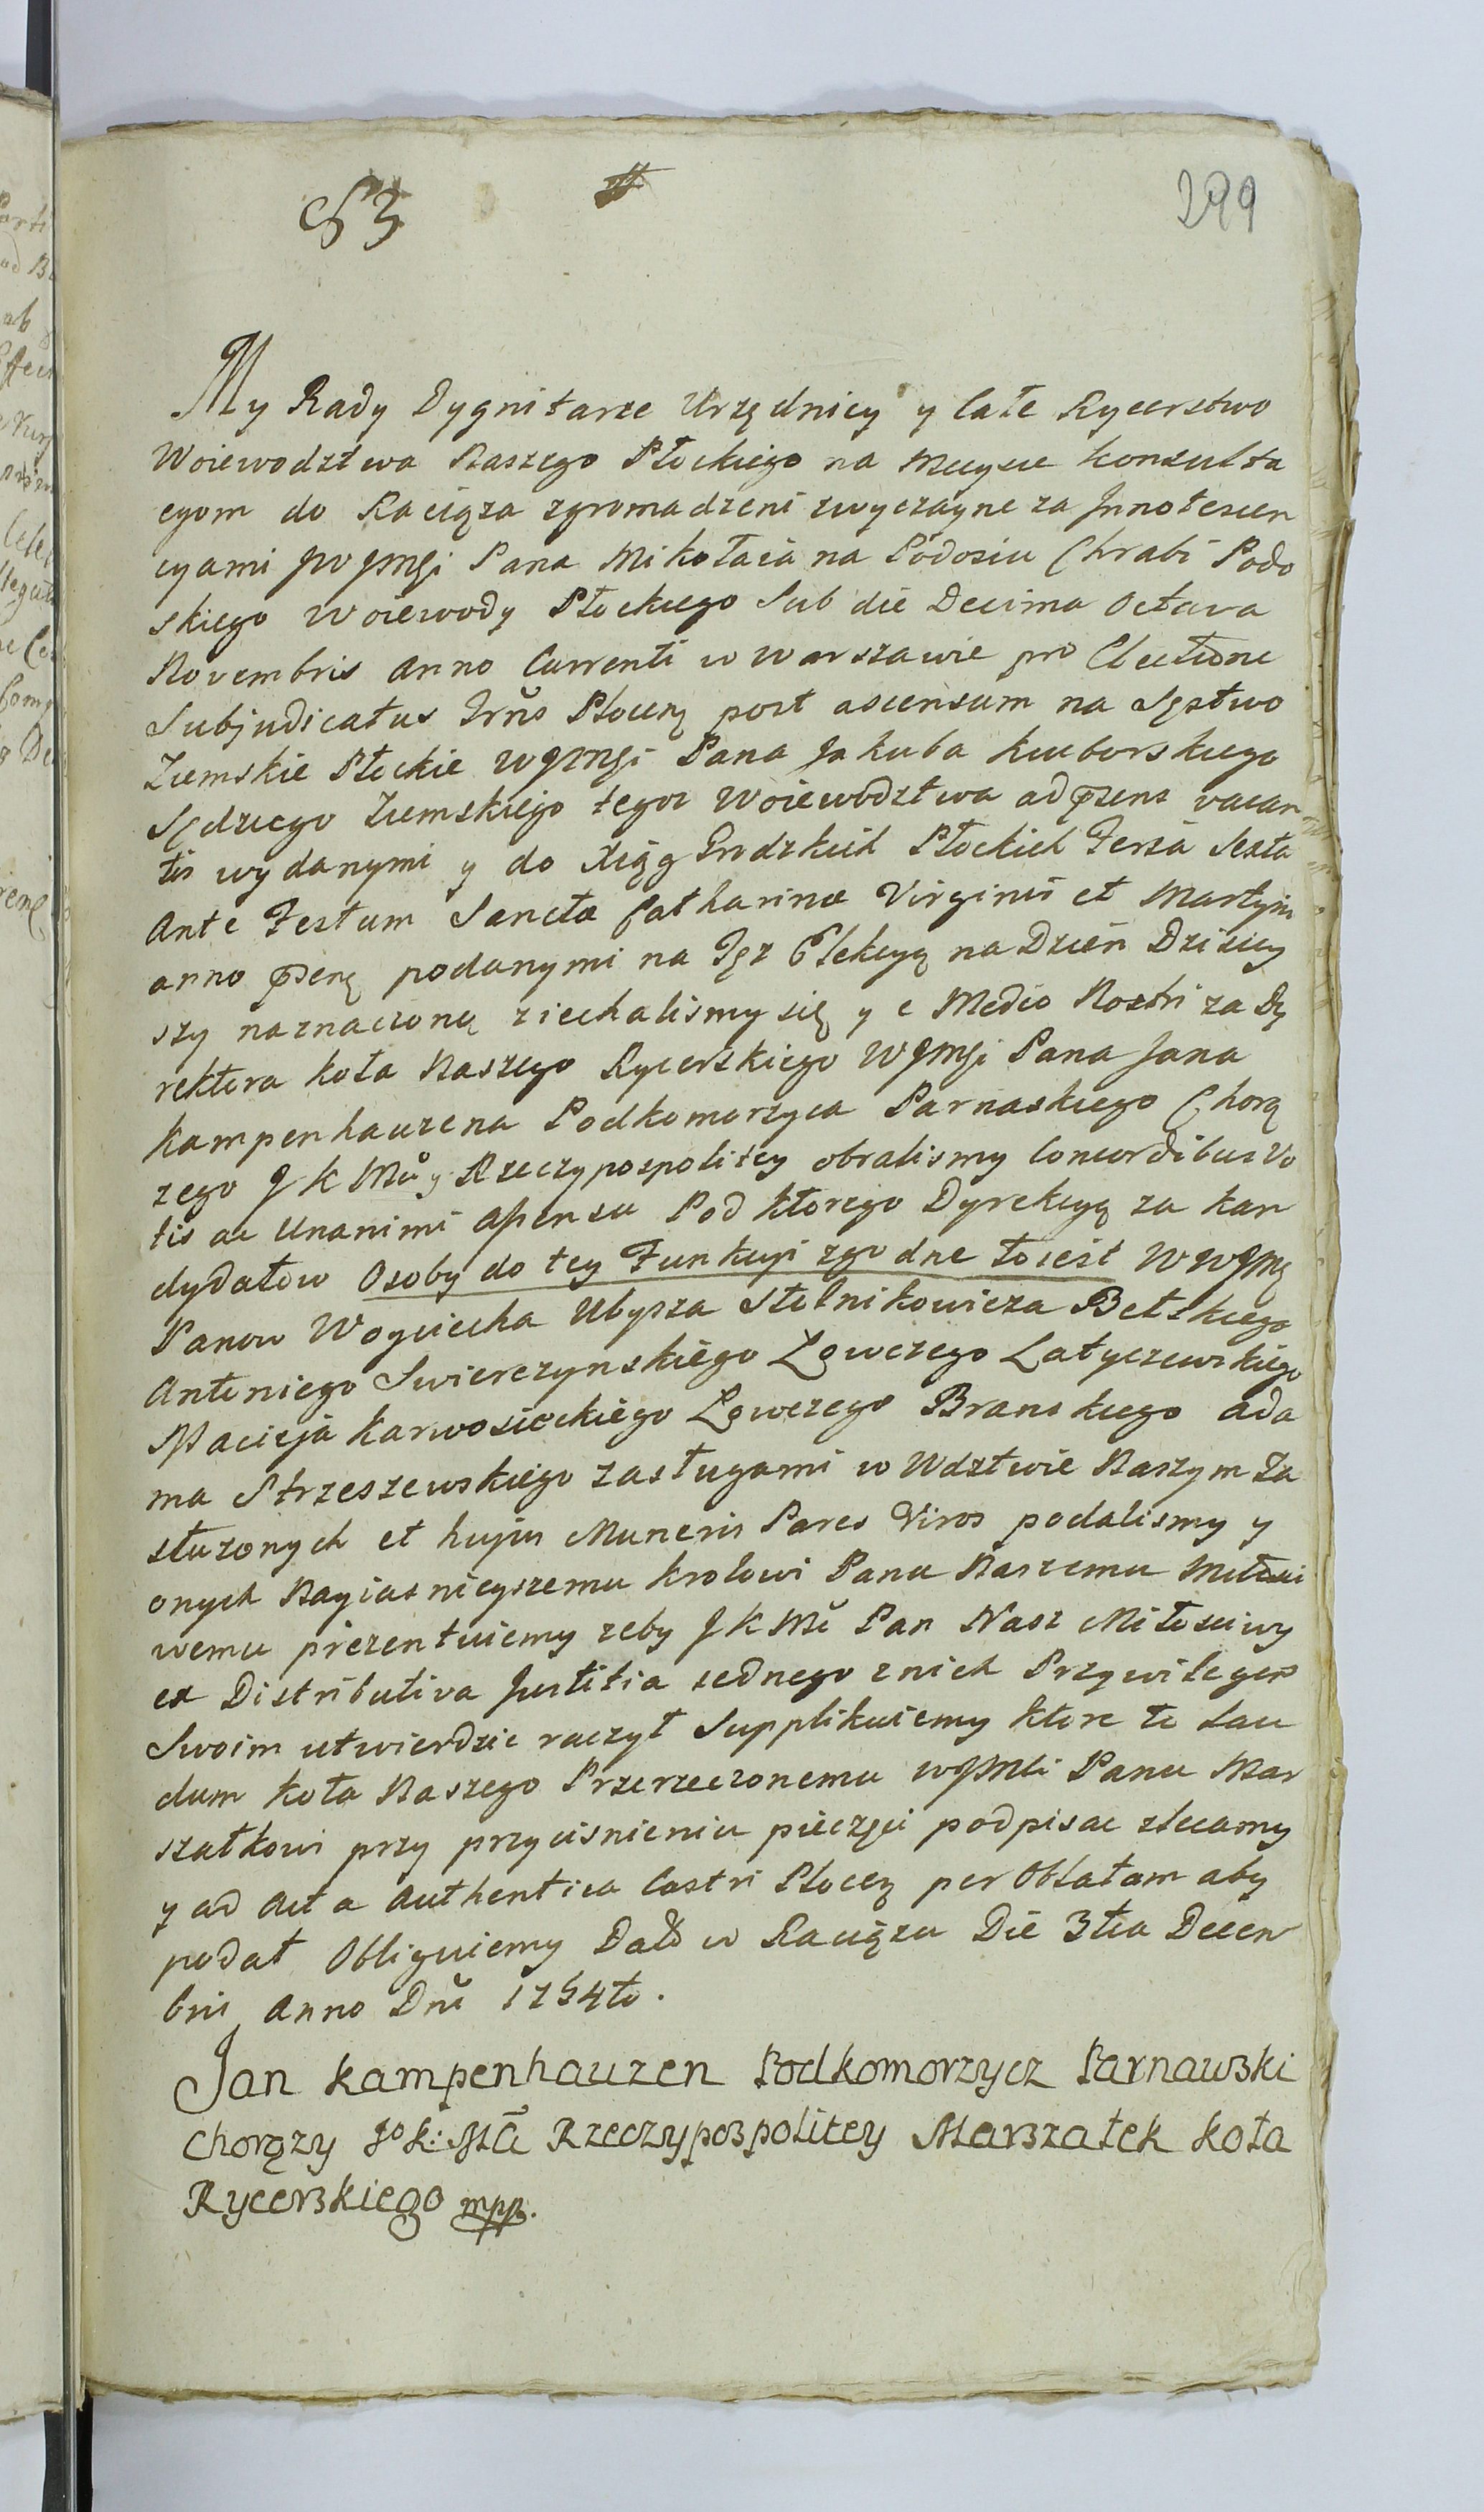 53
299
My Rady Dygnitarze Urzędnicy y całe Rycerstwo
Woiewodztwa Naszego Płockiego na mieysce konsulta
cyom do Raciąża zgromadzeni zwyczayne za Jnnotescen
cyami JWJMSi Pana Mikołaia na Podosiu Chrabi Podo
skiego Woiewody Płockiego Sub die Decima Octava
Novembris Anno Currenti w Warszawie pro Electione
Subjudicatus Trŭs Płocen post ascensum na Sęstwo
Ziemskie Płockie WJMSi Pana Jakuba Kuborskiego
Sędziego Ziemskiego tegoz Woiewodztwa ad psens vacan
tis wydanymi y do Xiąg Grodzkich Płockich Feria Sexta
Ante Festum Sancta Catharinæ Virginis et Martyris
anno psenę podanymi na Tęz Elekcyą na Dzien Dzisiey
szy naznaczoną ziechalismy się y e Medio Nostri za Dy
rektora Koła Naszego Rycerskiego WJMSi Pana Jana
Kampenhauzena Podkomorzyca Parnaskiego Chorą
zego J K Mci y Rzeczypospolitey obralismy Concordibus Vo
tis ac Unanimi Assensu Pod ktorego Dyrekcyą za kan
dydatow Osoby do tey Funkcyi zgodne to iest WWJMę
Panow Woyciecha Ubysza Stolnikowicza Bełskiego
Antoniego Swierczynskiego Łowczego Latyczewskiego
Macieja Karwosieckiego Łowczego Branskiego Ada
ma Strzeszewskiego zasługami w Wdztwie Naszym Za
słuzonych et hujus Muneris Pares Viros podalismy y
onych Nayiasnieyszemu Krolowi Panu Naszemu Miłosci
wemu prezentuiemy zeby J K Mć Pan Nasz Miłosciwy
ex Distributiva Justitia iednego z nich Przywileyem
Swoim utwierdzic raczył Supplikuiemy ktore to Lau
dum Koła Naszego Przerzeczonemu WJMSi Panu Mar
szałkowi przy przycisnieniu pieczęci podpisac zlecamy
y ad Acta Authentica Castri Płocen per Oblatam aby
podał Obliguiemy Datt w Raciązu Die 3tia Decem
bris Anno Dni 1754to.
Jan Kampenhauzen Podkomorzycz Parnawski
Chorązy Jo K: Mci Rzeczypospolitey Marszałek Koła
Rycerskiego mpp.